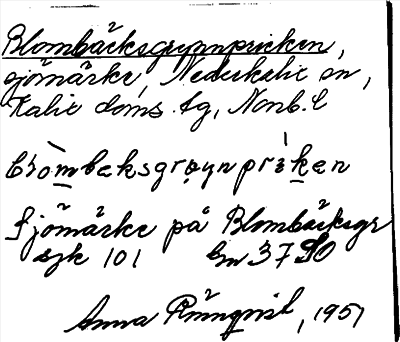 Blombäcksgrynnpricken,
sjömärke, Nederkalix sn,
Kalix doms. tg, Norrb. l
blòmbeksgrøynpríken
Sjömärke på Blombäcksgr
sjk 101 bn 37 SO
Anna Rönnqvist, 1951